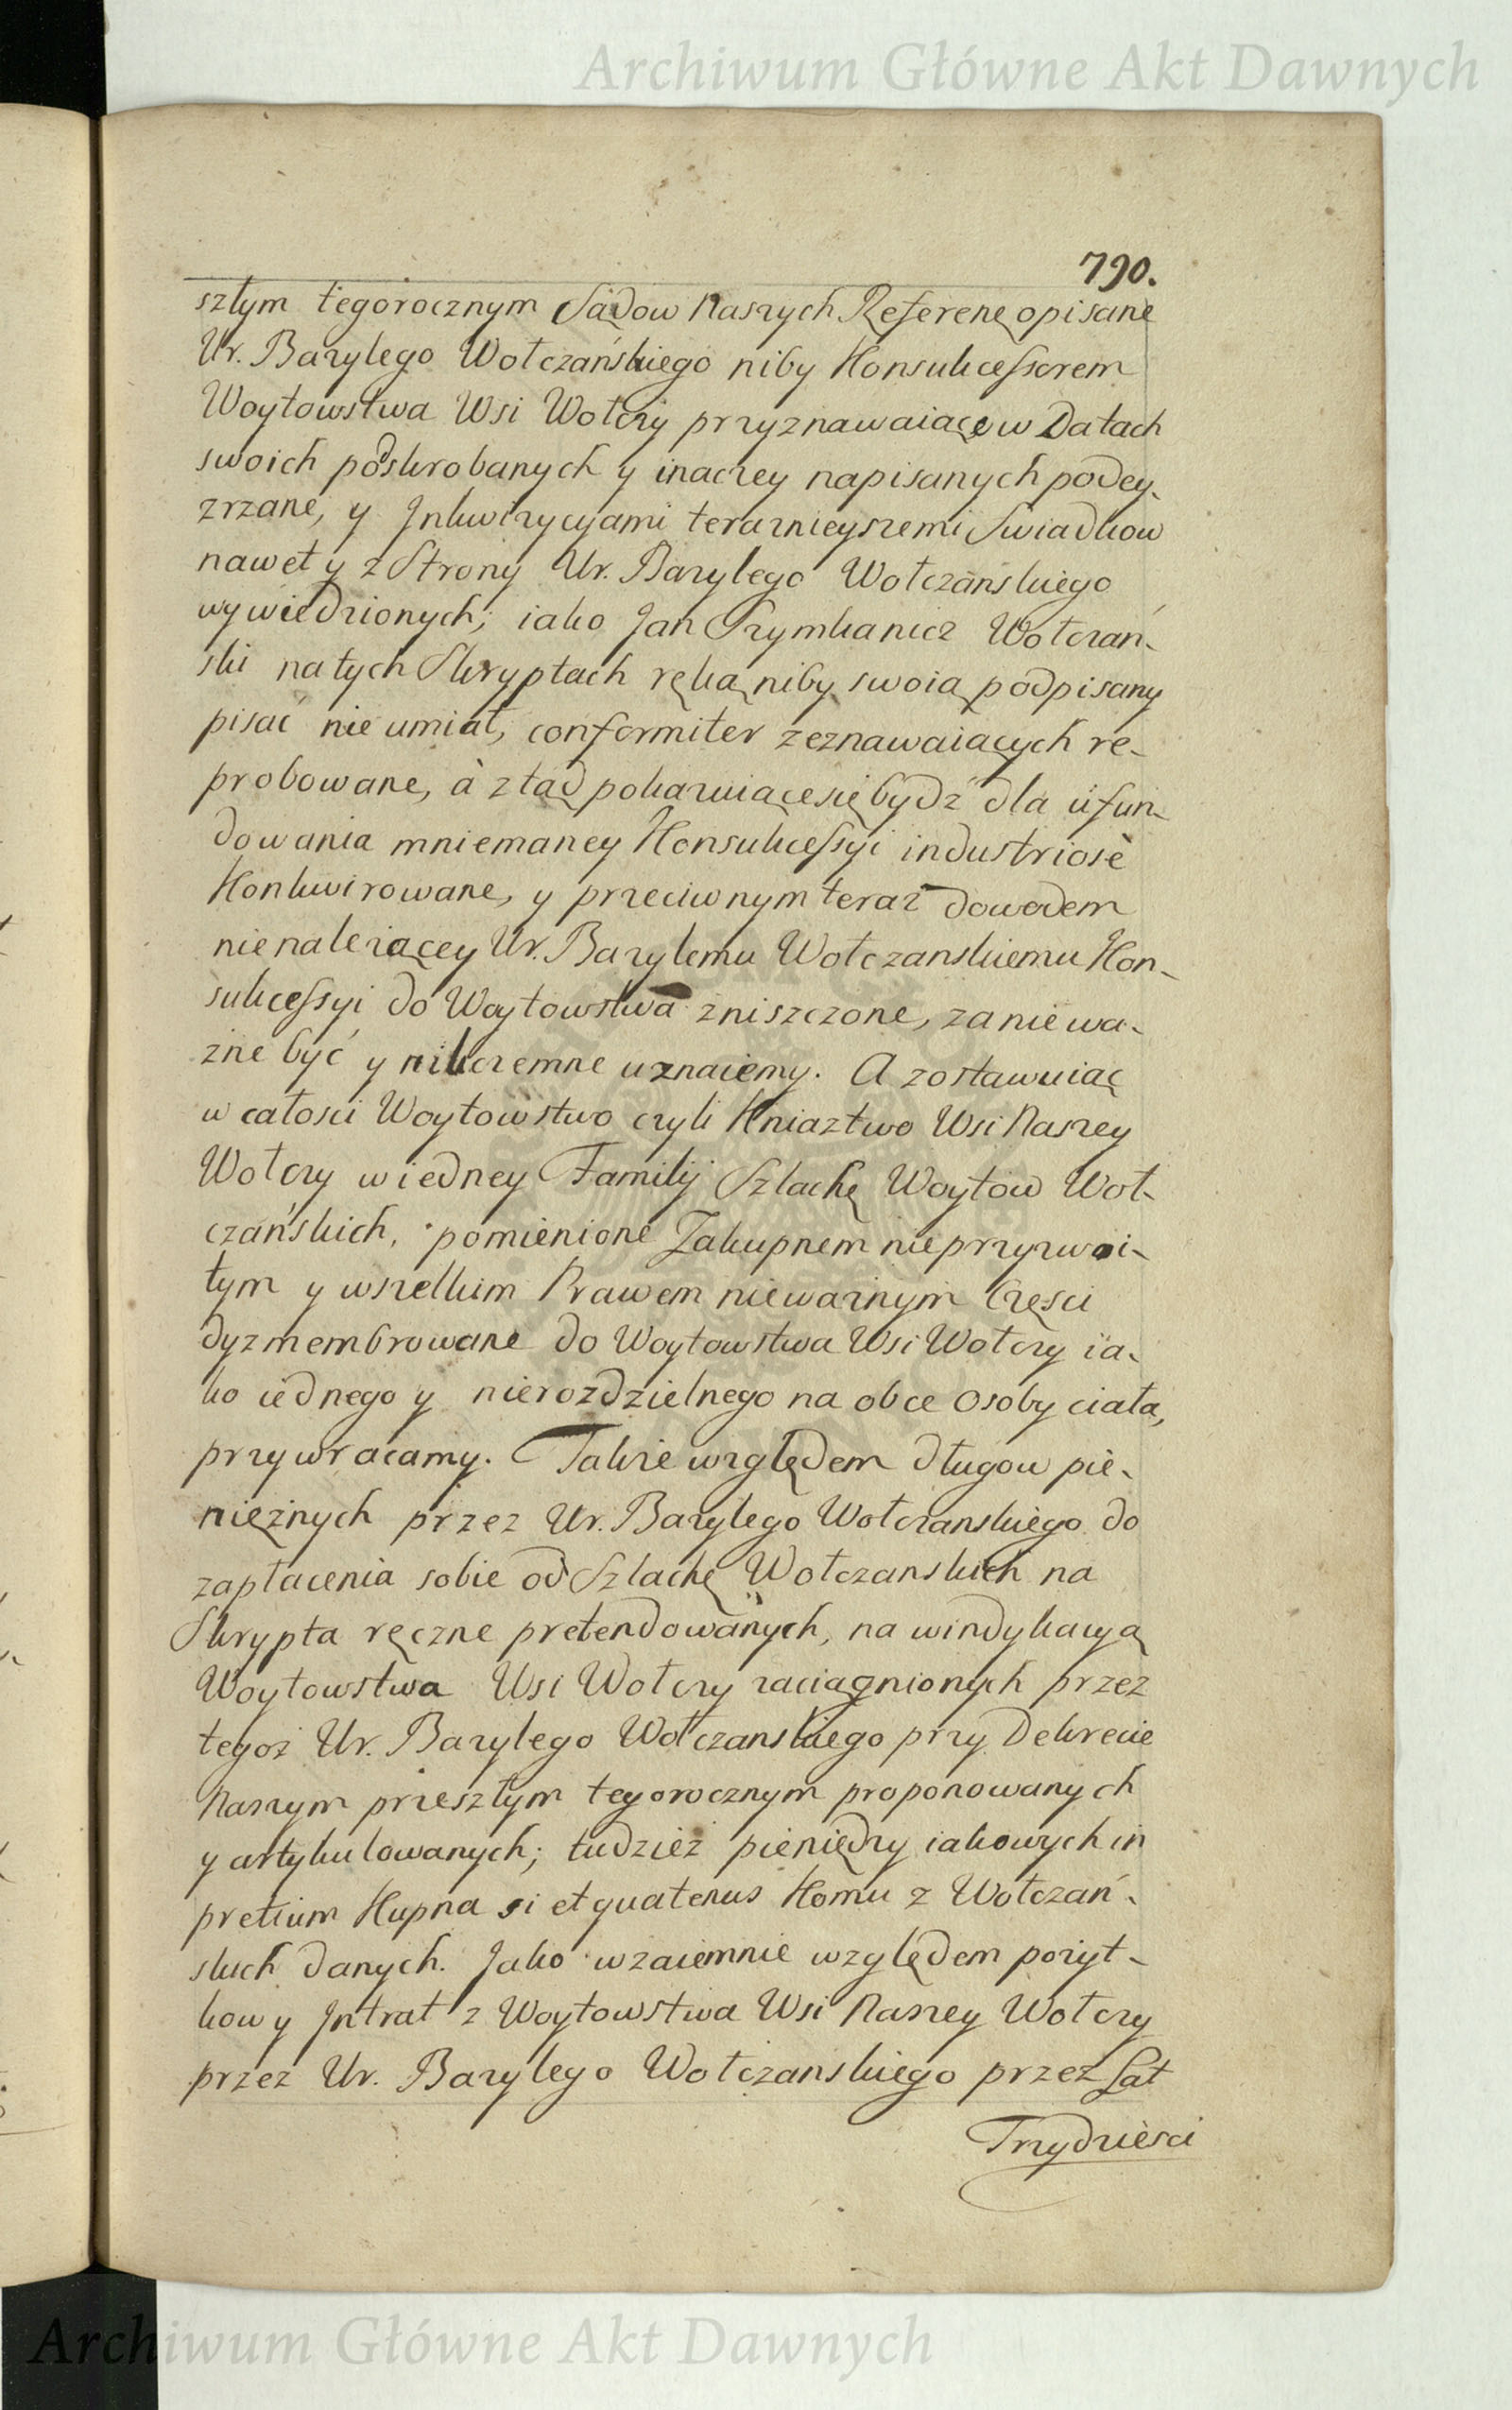 Archiwum Główne Akt Dawnych
790.
szłym tegorocznym Sądow Naszych Referenę opisane
Ur. Bazylego Wołczańskiego niby Konsukcessorem
Woytowstwa Wsi Wołczy przyznawaiące w Datach
swoich poskrobanych y inaczey napisanych podey-
zrzane, y Inkwizycyami teraznieyszemi Swiadkow
nawet y z Strony Ur. Bazylego Wołczańskiego
wywiedzionych; iako Jan Szymkanicz Wołczań-
ski na tych Skryptach ręką niby swoią podpisany
pisać nie umiał, conformiter zeznawaiących re-
probowane, à ztąd pokazuiące się bydź dla ufun-
dowania mniemaney Konsukcessyi industriosè
Konkwirowane, y przeciwnym teraz dowodem
nienależącey Ur. Bazylemu Wołczanskiemu Kon-
sukcessyi do Woytowstwa zniszczone, za niewa-
żne być y nikczemne uznaiemy. A zostawuiąc
w całosci Woytowstwo czyli Kniaztwo Wsi Naszey
Wołczy w iedney Familij Szlachę Woytow Woł-
czańskich, pomienione Zakupnem nieprzyzwoi-
tym y wszelkim Prawem nieważnym Częsci
dyzmembrowane do Woytowstwa Wsi Wołczy ia-
ko iednego y nierozdzielnego na obce Osoby ciała,
przywracamy. Także względem długow pie-
niężnych przez Ur. Bazylego Wołczanskiego do
zapłacenia sobie od Szlachę Wołczanskich na
Skrypta ręczne pretendowanych, na windykacyą
Woytowstwa Wsi Wołczy zaciągnionych przez
tegoż Ur. Bazylego Wołczanskiego przy Dekrecie
Naszym przeszłym tegorocznym proponowanych
y artykulowanych; tudzież pieniędzy iakowych in
pretium Kupna si et quatenus Komu z Wołczań-
skich danych. Jako wzaiemnie względem pożyt-
kow y Intrat z Woytowstwa Wsi Naszey Wołczy
przez Ur. Bazylego Wołczanskiego przez Lat
Trzydziesci
Archiwum Główne Akt Dawnych